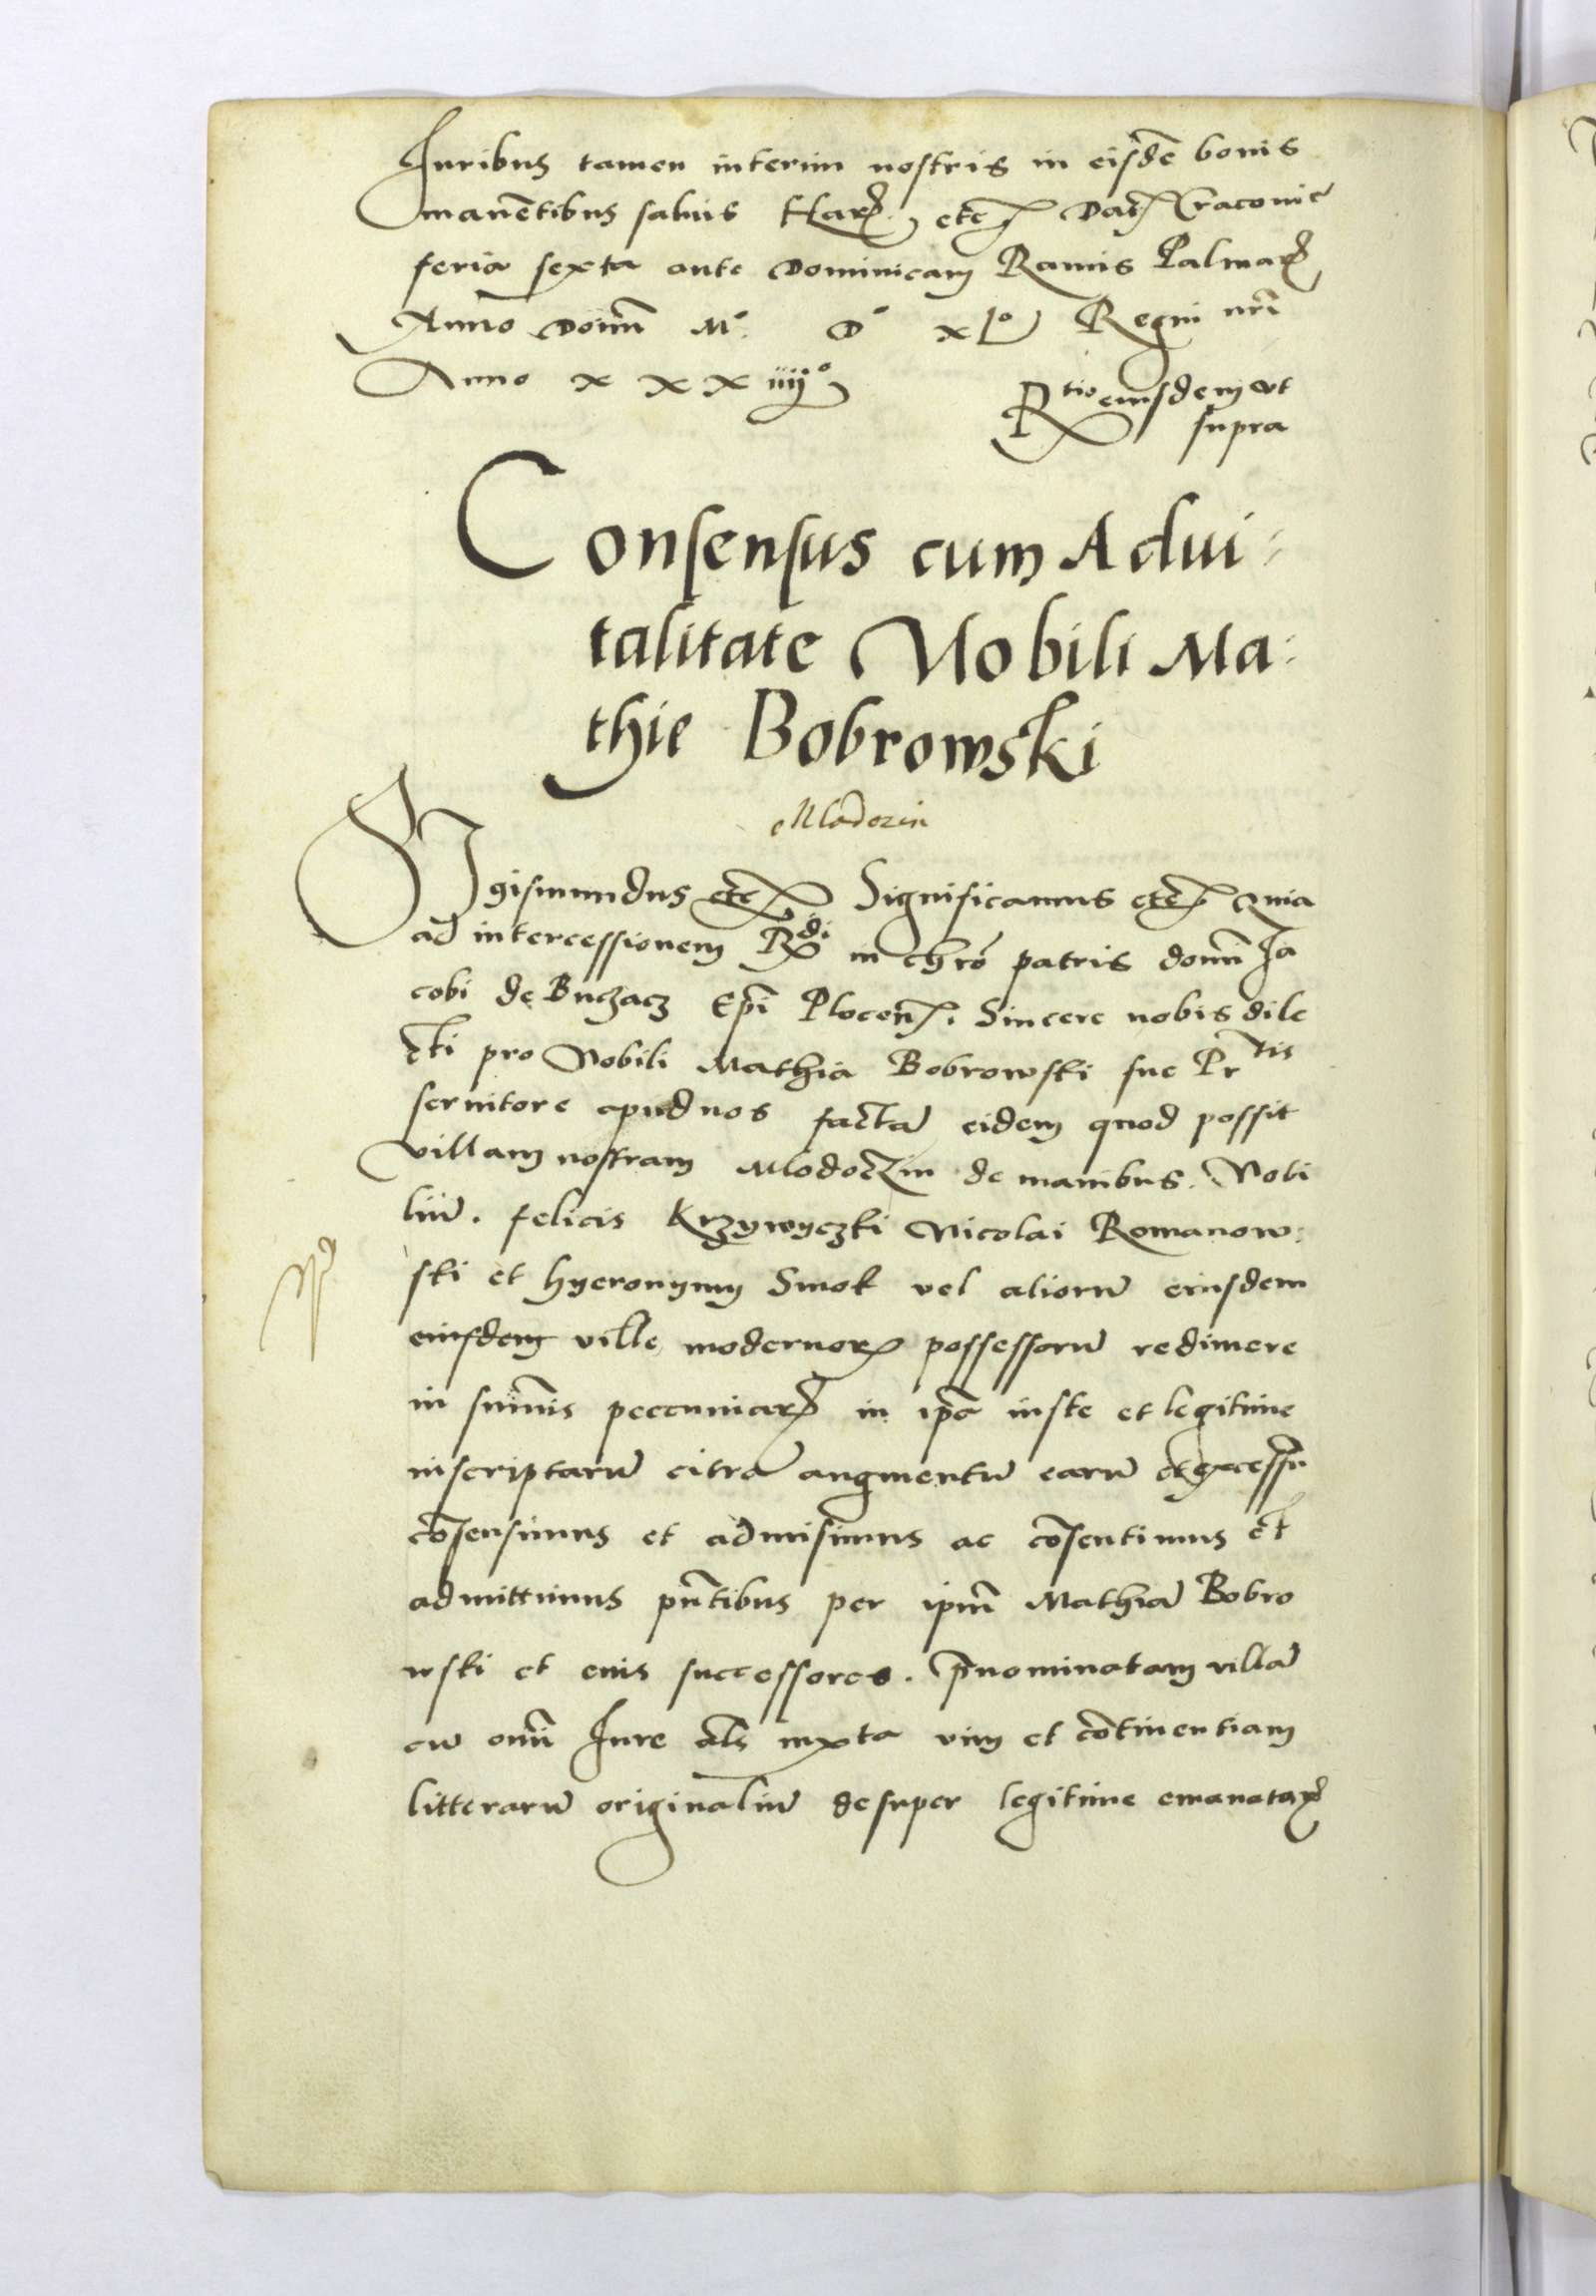 Juribus tamen interim nostris in eisdē bonis
manētibus saluis Harꝝ etcꝫ Datꝫ Cracouie
feria sexta ante Dominicam Ramis Palmaꝝ
Anno Domī Mº Dº xlº Regni nrī
Anno x x x iiiiº
Rtio eiusdem vt
supra
Consensus cum Adui-
talitate Nobili Ma:
thie Bobrowski
Mladozin
Sigismundus etcꝫ Significamus etcꝫ Quia
ad intercessionem Rdi in chrō patris domī Ja
cobi de Buczacz Epī Plocenꝫ. Sincere nobis dile
cti pro Nobili Mathia Bobrowski sue Prtis
seruitore apud nos factā eidem quod possit
villam nostram Mlodoczin de manibus. Nobi
liū. felicis Krzywyczki Nicolai Romanow:
ski et Hyeronymy Smok vel aliorū eiusdem
eiusdem ville modernoꝝ possessorū redimere
in sum̄is peccuniaꝝ in ipā iuste et legitime
inscriptarū citra augmentū earū et excessū
cōsensimus et admisimus ac cōsentimus et
admittimus pn̄tibus per ipm̄ Mathiā Bobro
wski et euis successores. p̄nominatam villā
cū omī Jure als iuxta vim et cōtinentiam
litterarū originaliū desuper legitime emanataꝝ